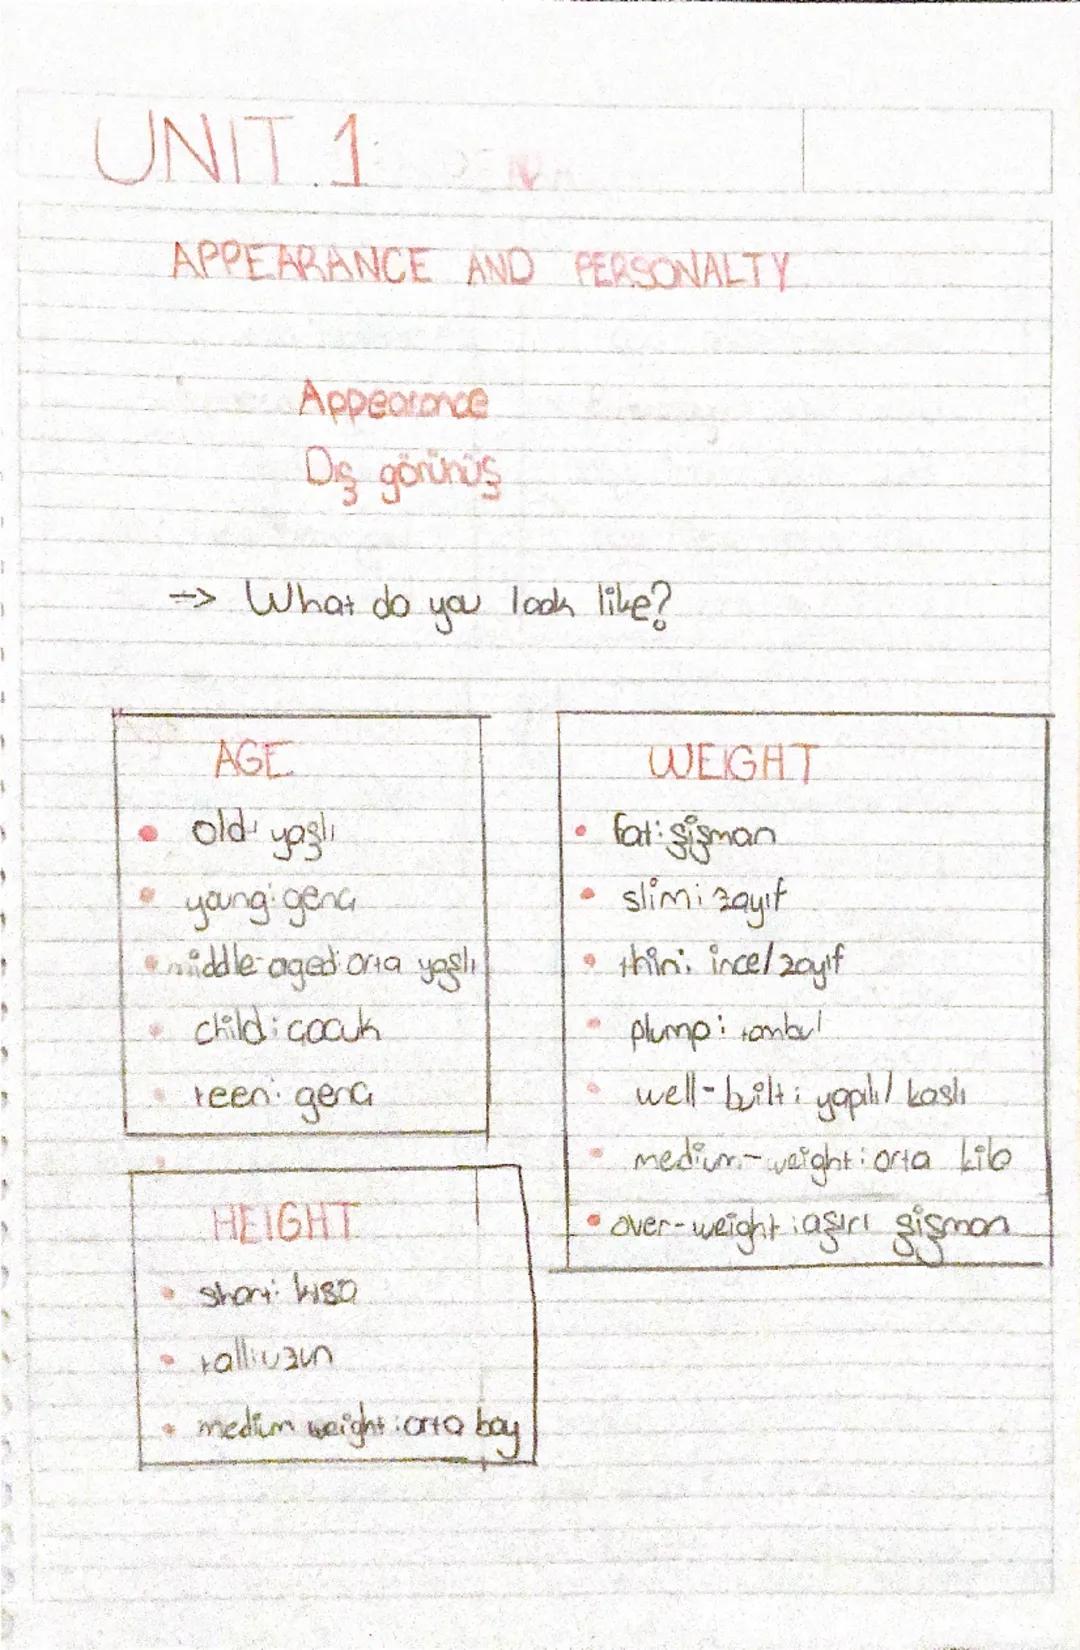 UNIT 1
APPEARANCE AND PERSONALTY
Appearance
Dış görünüş
-> What do you look like?
AGE
old: yaşlı
young: genç
middle-aged: orta yaşlı
child: çocuk
teen: genç
HEIGHT
short: kısa
tall: uzun
medium weight: orta boy
WEIGHT
fat: şişman
slim: zayıf
thin: ince/zayıf
plump: tombul
well-built: yapılı/kaslı
medium-weight: orta kilo
over-weight: aşırı şişman